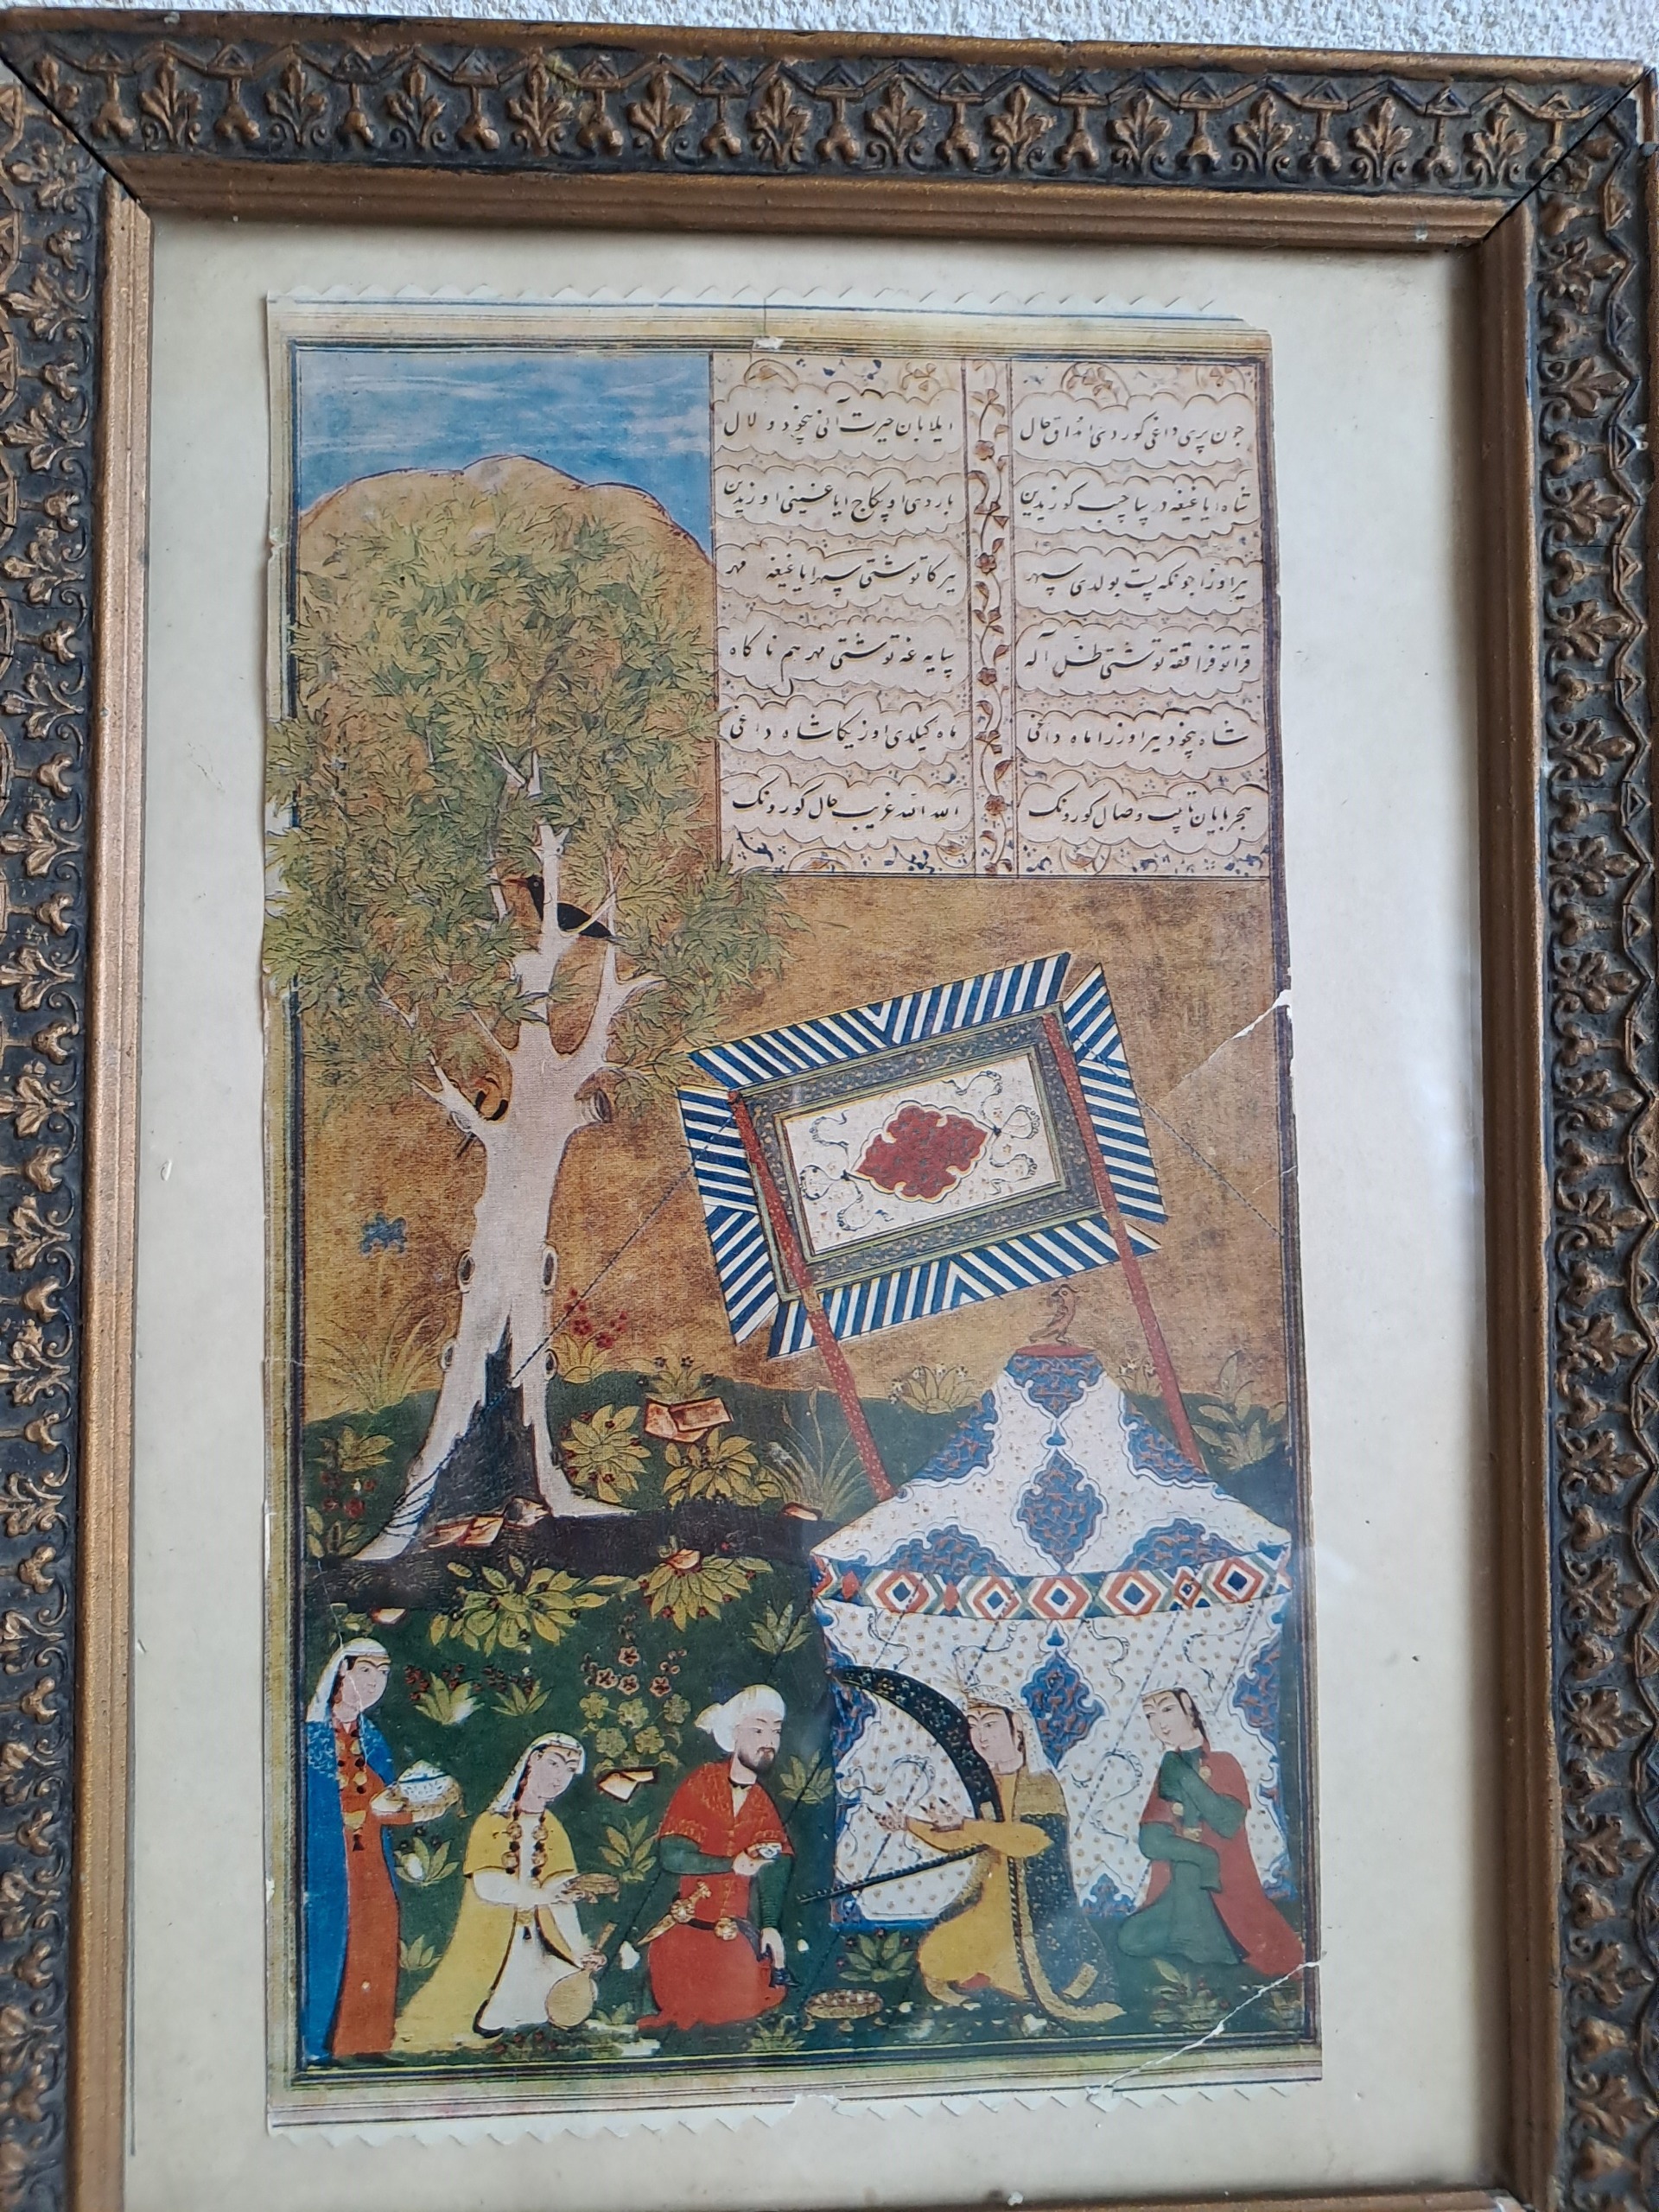 چون پری داغی کوردی انداق حال
ایلابان حیرت آنی بیخود و لال
شاه ایاغیغه در ساچیب کوزیدین
باردی اوپکاج ایاغینی اوزیدین
ییر اوزا چونکه پست بولدی سپهر
ییرکا توشتی سپهر ایاغیغه مهر
قرا توفراققه توشتی ظل آله
سایه غه توشتی مهر هم ناکاه
شاه بیخود ییر اوزرا ماه داغی
ماه کیلدی اوزیکا شاه داغی
تاپیب وصال کورونک
الله الله غریب حال کورونک